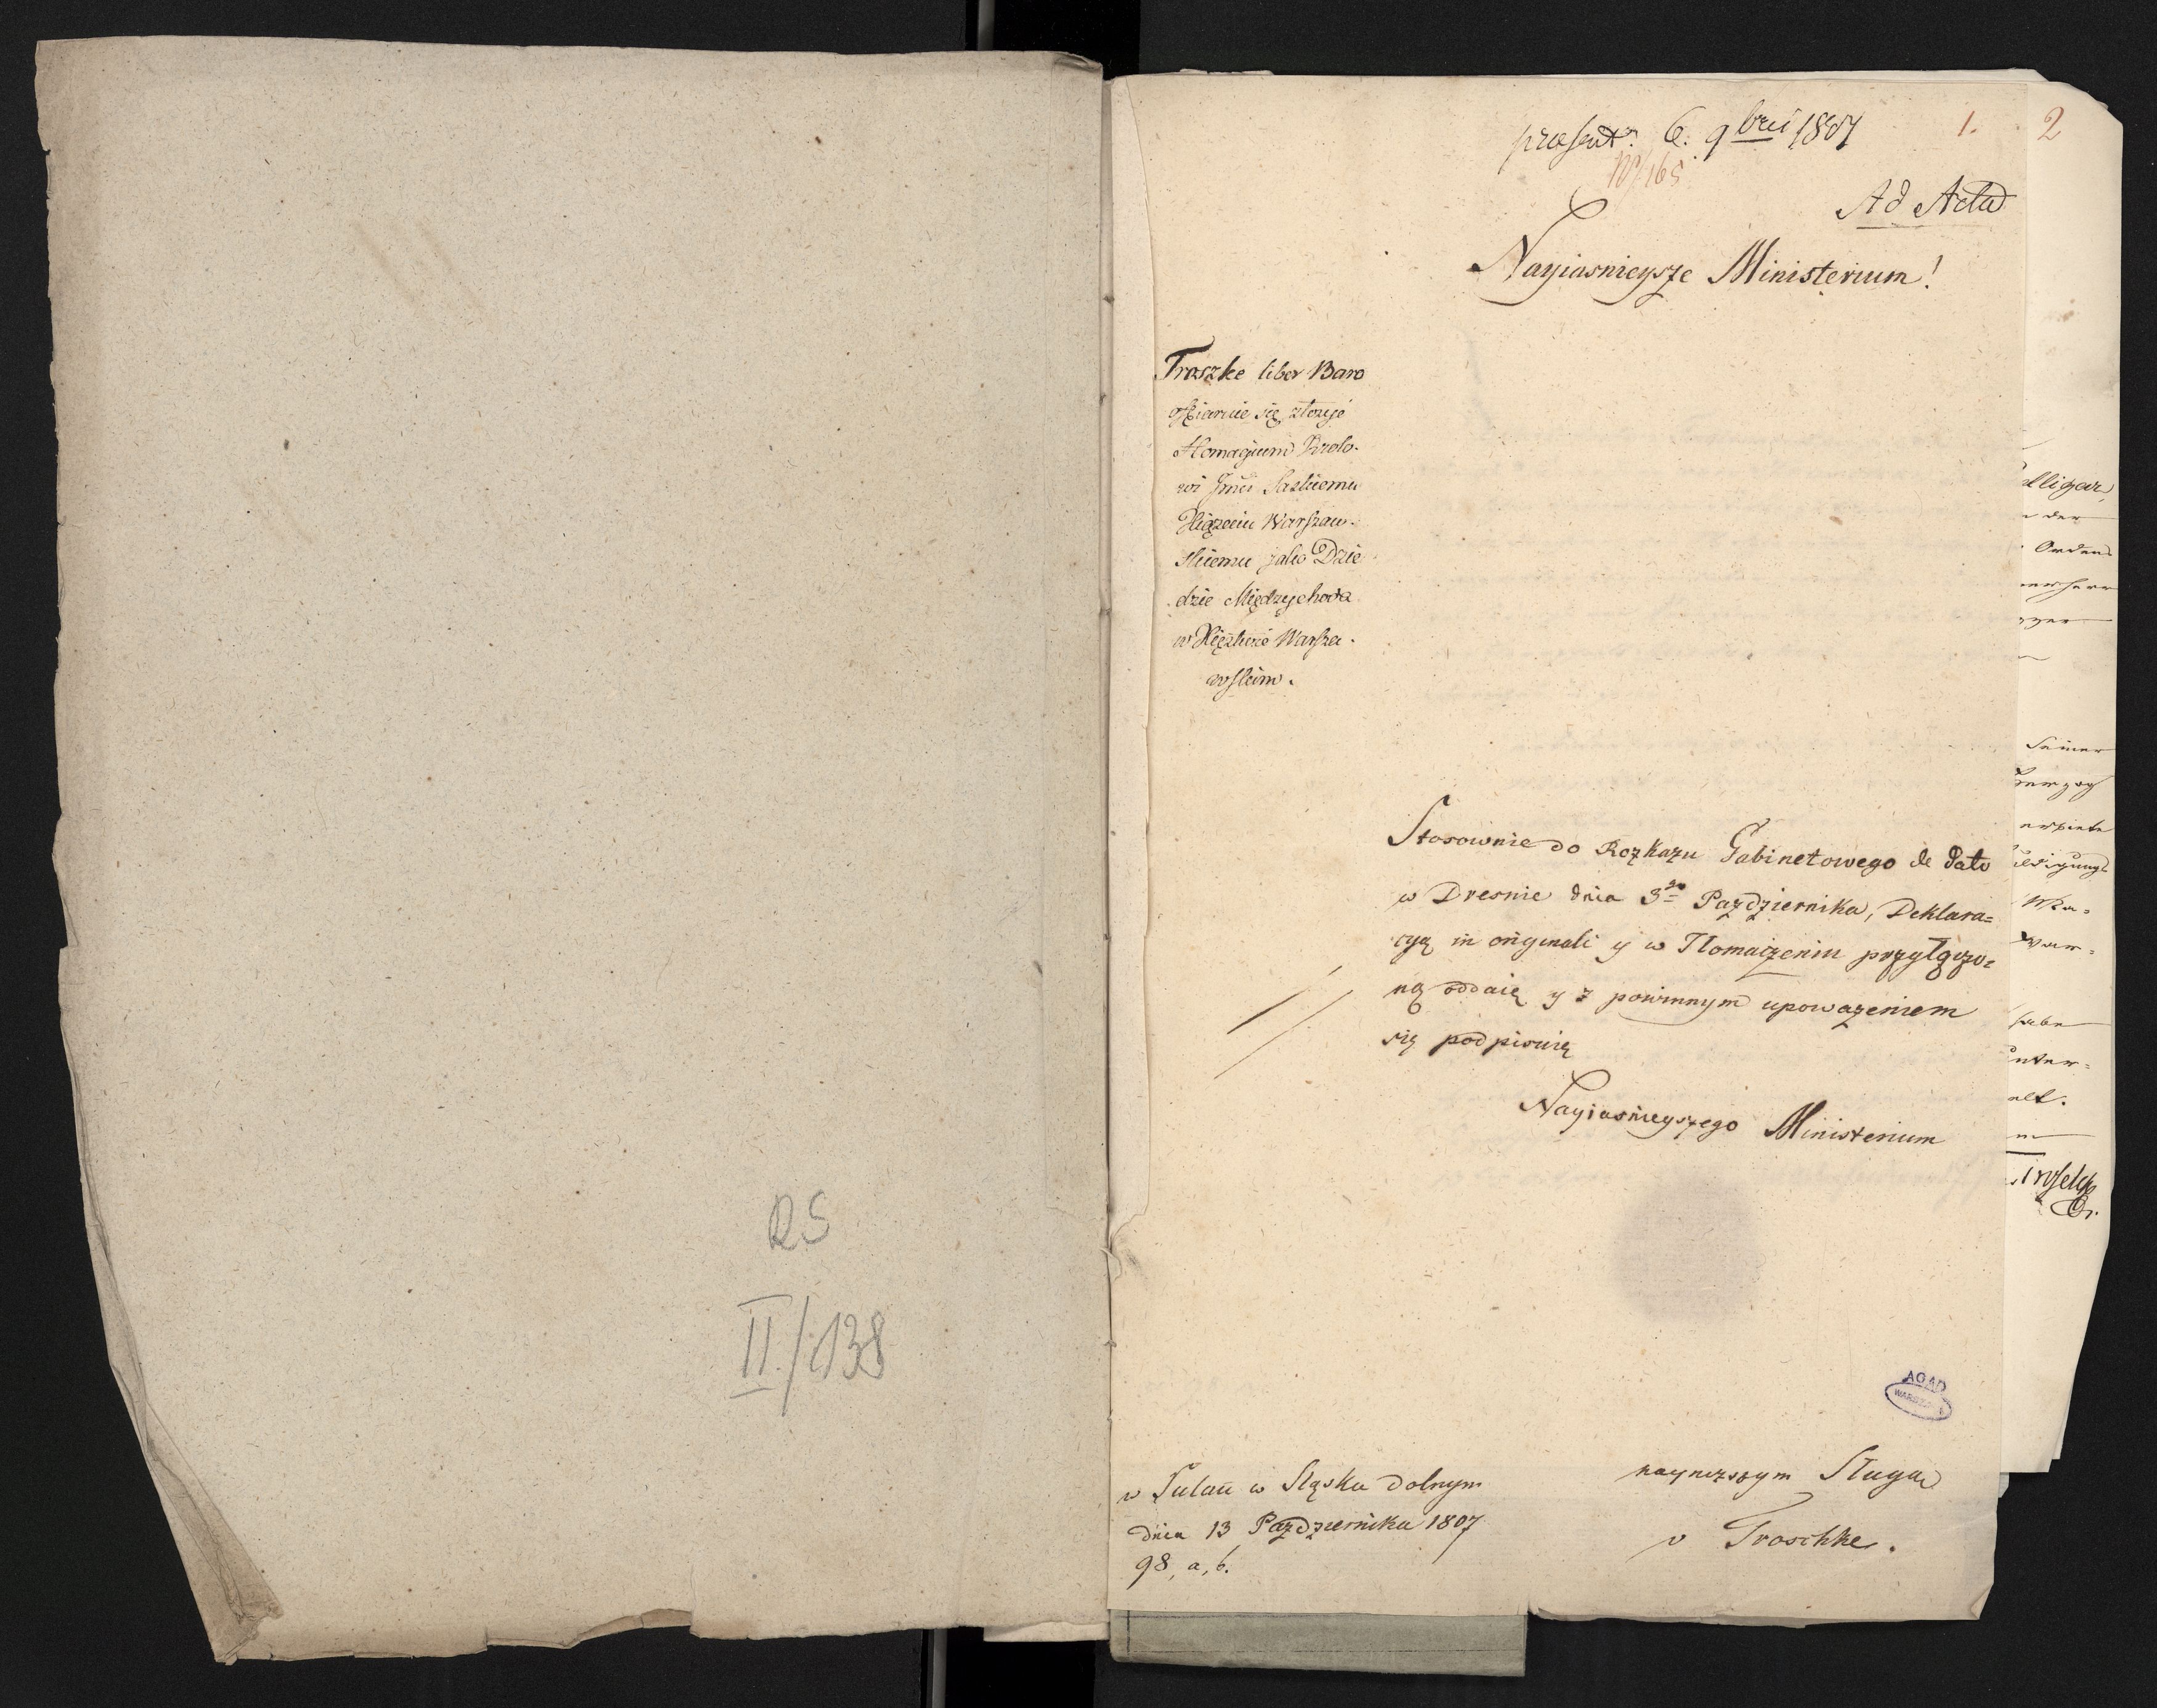 RS
II/138
praesent: 6. 9brii 1807
1.
2
N/165
Ad Acta
Nayiasnieysze Ministerium!
Troszke liber Baro
ofiaruie się złożyć
Homagium Krolo-
wi Jmci Saskiemu
Xiążęciu Warszaw-
skiemu jako Dzie
dzic Międzychoda
w Xięstwie Warsza-
wskim.
Stosownie do Rozkazu Gabinetowego de dato
w Dresnie dnia 3go Pazdziernika, Deklara=
cyą in originali y w Tlomaczeniu przyłączo=
ną oddaię y z powinnym upoważeniem
się podpisuię
Nayiasnieyszego Ministerium
AGAD
WARSZAWA
w Sulau w Sląsku dolnym
dnia 13 Pazdziernika 1807
98, a, b.
naynizszym Sługa
v Troschke.
der
Ordens
Seiner
habe
unter=